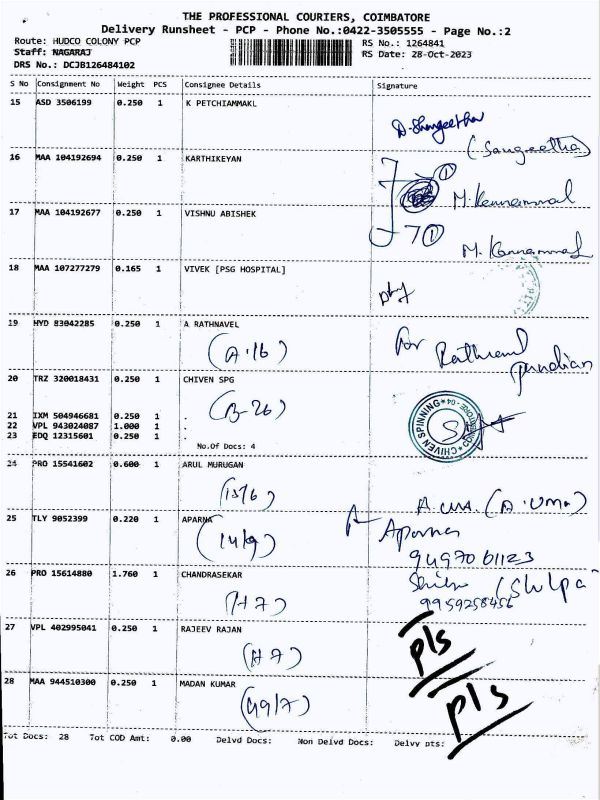 THE PROFESSIONAL COURIERS, COIMBATORE
Delivery Runsheet - PCP - Phone No.:0422-3505555 - Page No.:2
Route: HUDCO COLONY PCP RS No.: 1264841
Staff: NAGARAJ RS Date: 28-Oct-2023
DRS No.: DCJB126484102
S No Consignment No Weight PCS Consignee Details Signature
15 ASD 3506199 0.250 1 K PETCHIAMMAKL
D. Shangeetha
(Sangeetha)
16 MAA 104192694 0.250 1 KARTHIKEYAN
1
M. Kannammal
17 MAA 104192677 0.250 1 VISHNU ABISHEK
70 1
M. Kannammal
18 MAA 107277279 0.165 1 VIVEK [PSG HOSPITAL]
19 HYD 83042285 0.250 1 A RATHNAVEL
(A.16) for Rathnavel
pandian
20 TRZ 320018431 0.250 1 CHIVEN SPG
(B-26) CHIVEN SPINNING COIMBATORE - 04
21 IXM 504946681 0.250 1 .
22 VPL 943024087 1.000 1 .
23 EDQ 12315601 0.250 1 .
No.Of Docs: 4
24 PRO 15541602 0.600 1 ARUL MURUGAN
(15/6) A.uma. (A.Uma)
25 TLY 9052399 0.220 1 APARNA
(14/9) Aparna
9497061123
26 PRO 15614880 1.760 1 CHANDRASEKAR
(Shilpa
(H7) 9959258456
27 VPL 402995041 0.250 1 RAJEEV RAJAN
(H7) pls
28 MAA 944510300 0.250 1 MADAN KUMAR
(49/7) pls
Tot Docs: 28 Tot COD Amt: 0.00 Delvd Docs: Non Delvd Docs: Delvy pts: